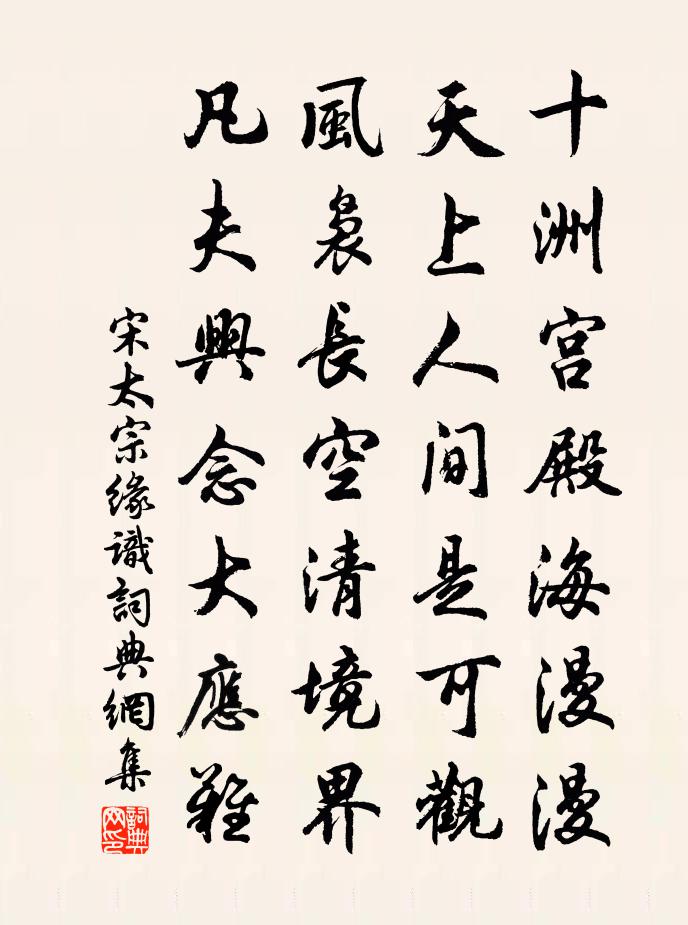 十洲宫殿海漫漫
天上人间是可觀
風裊長空清境界
凡夫興念大應難
宋太宗緣識詞典網集
詞典網印